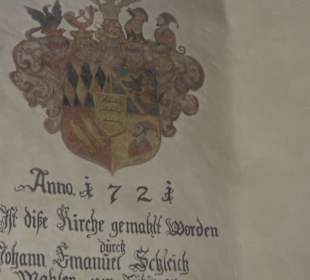 Anno. 1721
Ist diße Kirche gemahlt Worden
durch
Johann Emanuel Schleich
Mahler von